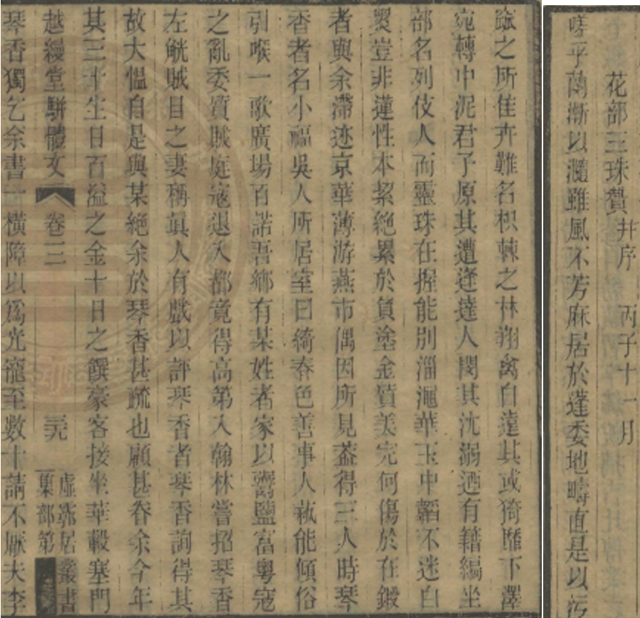 花部三珠贊并序 丙子十一月
嗟乎蘭漸以瀡雖風不芳麻居於蓬委地疇直是以污
窳之所佳卉難名枳棘之林翔禽自遠其或猗靡下澤
宛轉中泥君子原其遭逢達人閔其沈溺迺有籍編坐
部名列伎人而靈珠在握能別淄澠華玉中韜不迷白
黑豈非蓮性本絜絕累於負塗金質美完何傷於在鍛
者與余滯迹京華薄游燕市偶因所見葢得三人時琴
香者名小福吳人所居室曰綺春色善事人執能傾俗
引喉一歌廣場百諾吾鄉有某姓者家以鬻鹽富粵寇
之亂委質賊庭寇退入都竟得高第入翰林嘗招琴香
左觥賊目之妻稱眞人有戲以評琴香者琴香詢得其
故大愠自是與某絕余於琴香甚疏也顧甚眷余今年
其三十生日百溢之金十日之饌豪客接坐華轂塞門
越縵堂駢體文 卷二 三九 虛霩居叢書 集部第
琴香獨乞余書一橫障以爲光寵至數十請不厭夫李